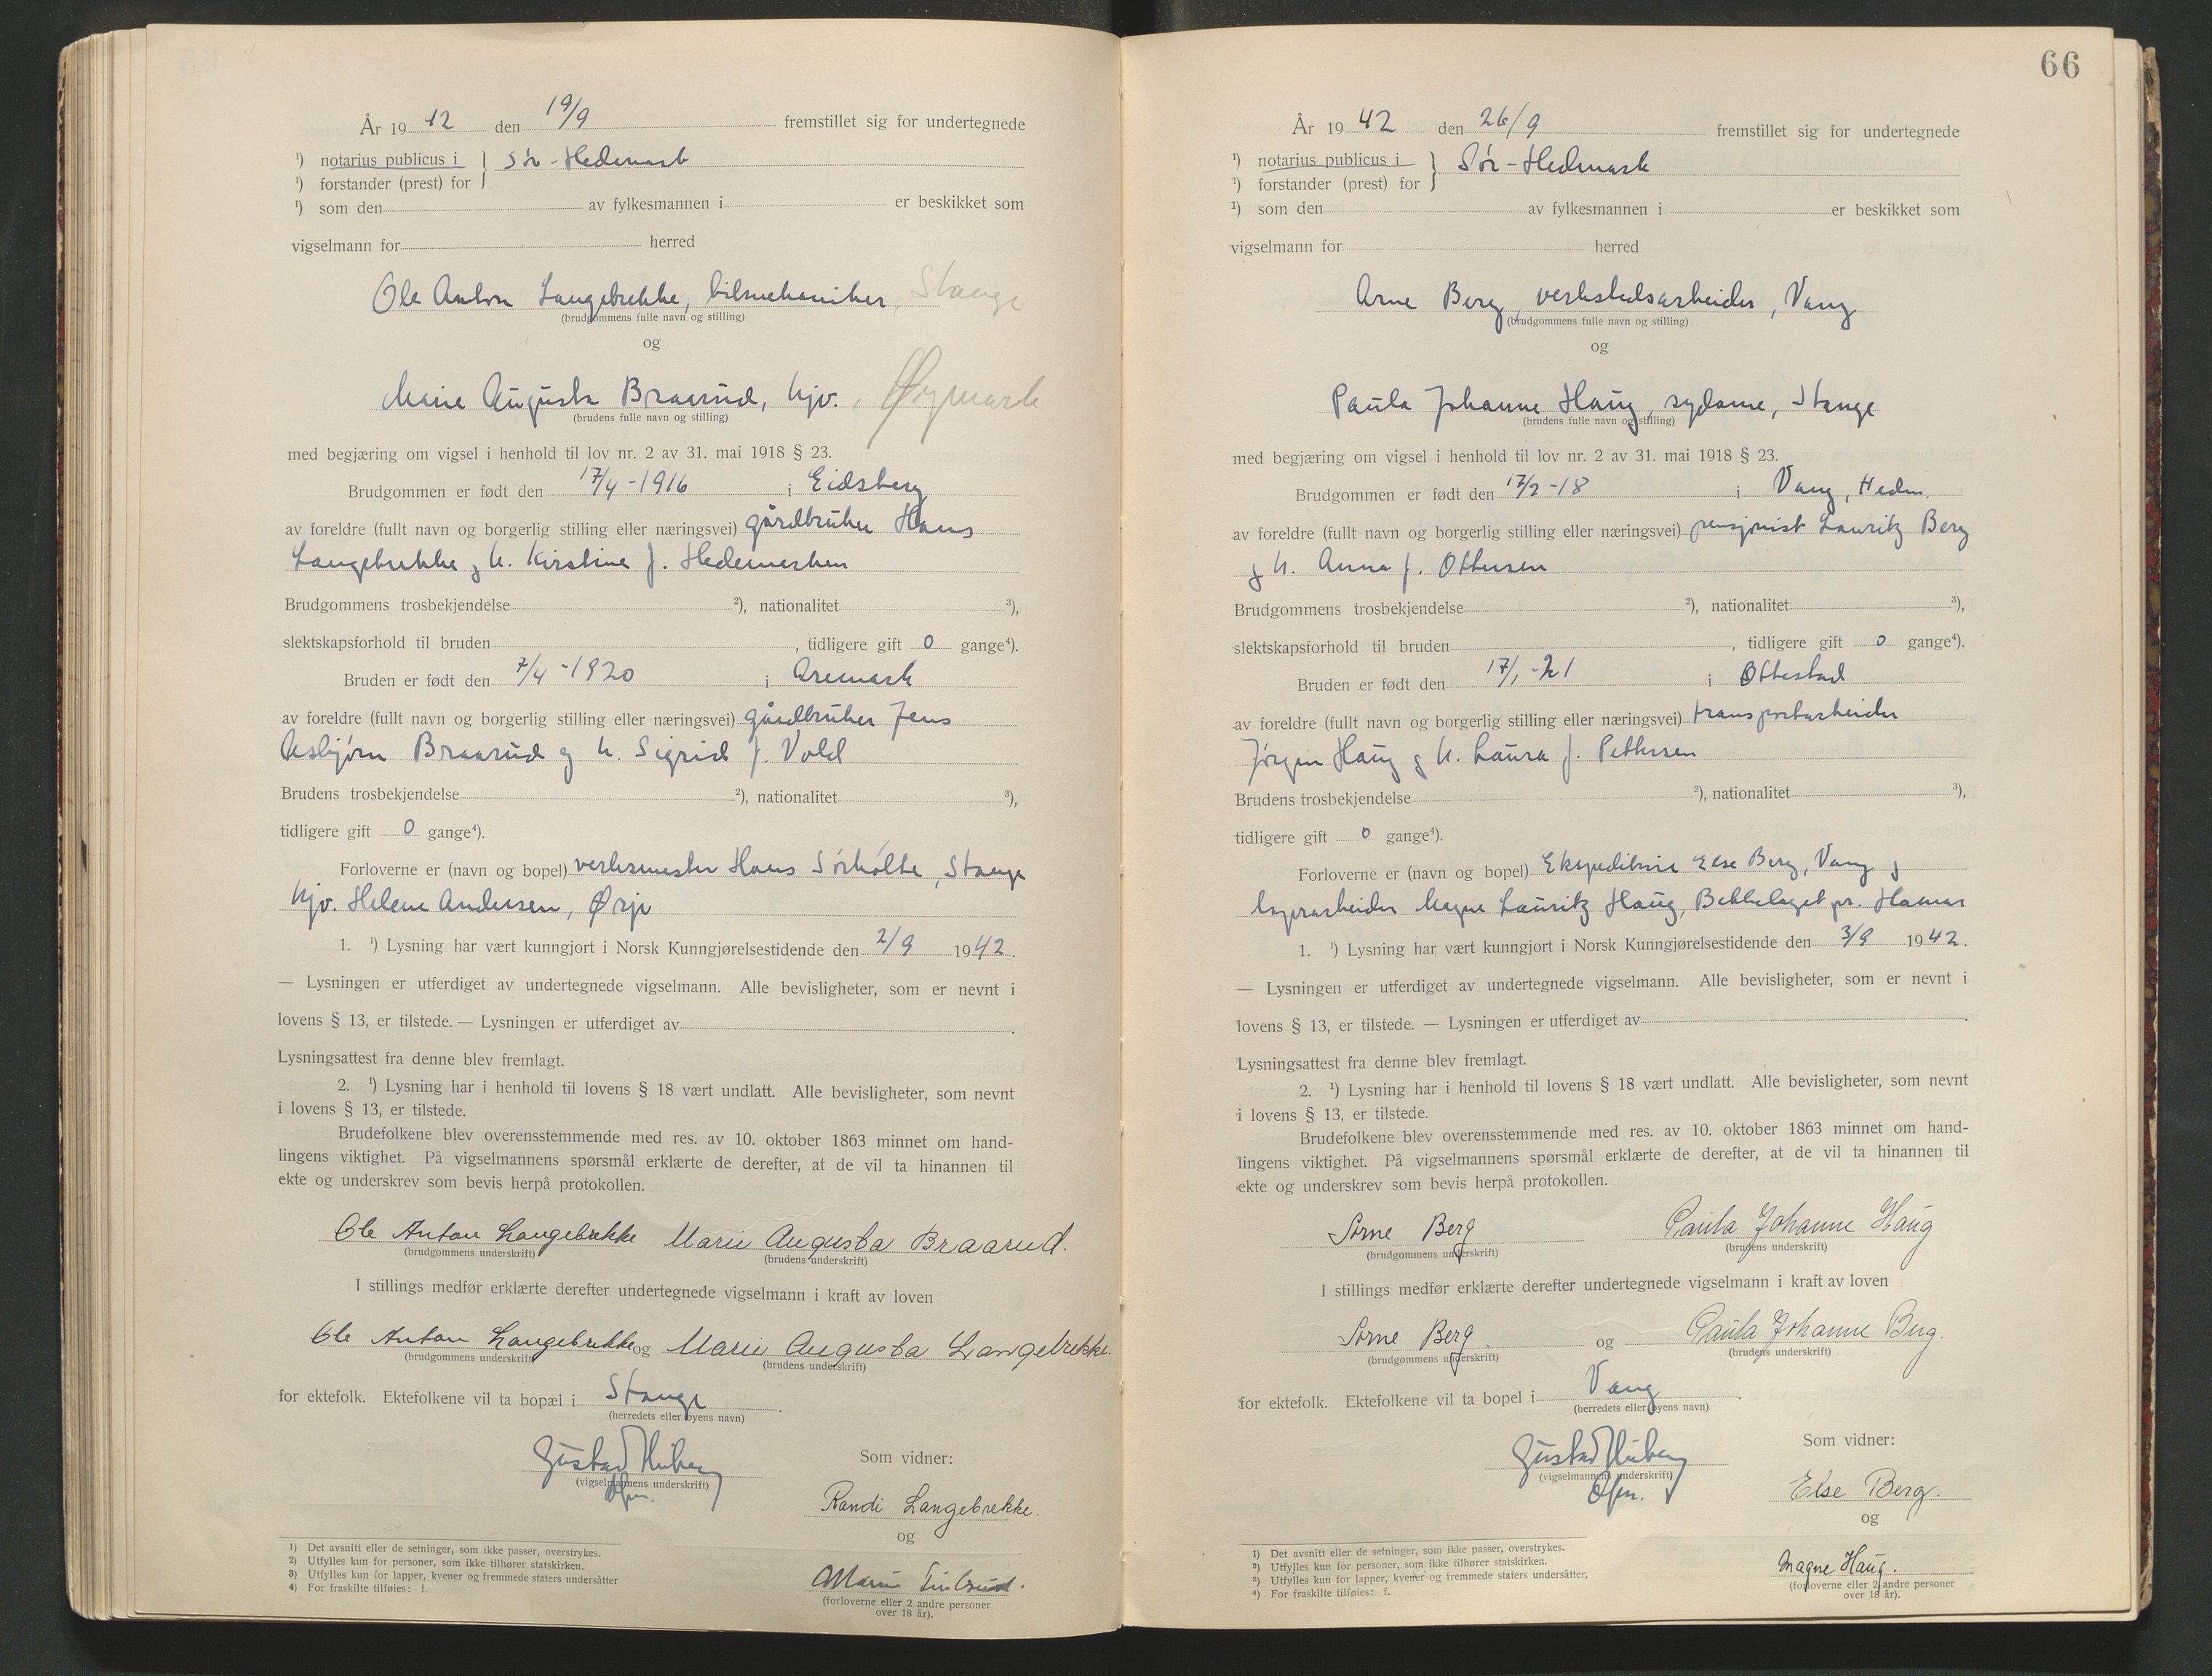 År 1942 den 19/9 fremstillet sig for undertegnede
¹) notarius publicus i } Sør-Hedmark
¹) forstander (prest) for
¹) som den av fylkesmannen i er beskikket som
vigselmann for herred
Ole Anton Langebrekke, bilmekaniker, Stange
(brudgommens fulle navn og stilling)
og
Marie Augusta Braarud, hjv., Øymark
(brudens fulle navn og stilling)
med begjæring om vigsel i henhold til lov nr. 2 av 31. mai 1918 § 23.
Brudgommen er født den 17/4-1916 i Eidsberg
av foreldre (fullt navn og borgerlig stilling eller næringsvei) gårdbruker Hans
Langebrekke og h. Kirstine f. Hedemarken
Brudgommens trosbekjendelse ²), nationalitet ³),
slektskapsforhold til bruden , tidligere gift 0 gange⁴).
Bruden er født den 7/4-1920 i Aremark
av foreldre (fullt navn og borgerlig stilling eller næringsvei) gårdbruker Jens
Asbjørn Braarud og h. Sigrid f. Vold
Brudens trosbekjendelse ²), nationalitet ³),
tidligere gift 0 gange⁴).
Forloverne er (navn og bopel) verksmester Hans Sørholte, Stange
hjv. Helene Andersen, Ørje
1. ¹) Lysning har vært kunngjort i Norsk Kunngjørelsestidende den 2/9 1942.
— Lysningen er utferdiget av undertegnede vigselmann. Alle bevisligheter, som er nevnt i
lovens § 13, er tilstede. — Lysningen er utferdiget av .
Lysningsattest fra denne blev fremlagt.
2. ¹) Lysning har i henhold til lovens § 18 vært undlatt. Alle bevisligheter, som nevnt
i lovens § 13, er tilstede.
Brudefolkene blev overensstemmende med res. av 10. oktober 1863 minnet om hand-
lingens viktighet. På vigselmannens spørsmål erklærte de derefter, at de vil ta hinannen til
ekte og underskrev som bevis herpå protokollen.
Ole Anton Langebrekke Marie Augusta Braarud.
(brudgommens underskrift) (brudens underskrift)
I stillings medfør erklærte derefter undertegnede vigselmann i kraft av loven
Ole Anton Langebrekke og Marie Augusta Langebrekke.
(brudgommens underskrift) (brudens underskrift)
for ektefolk. Ektefolkene vil ta bopæl i Stange .
(herredets eller byens navn)
Gustav
(vigselmannens underskrift)
Som vidner:
Randi Langebrekke.
og
(forloverne eller 2 andre personer
over 18 år).
1) Det avsnitt eller de setninger, som ikke passer, overstrykes.
2) Utfylles kun for personer, som ikke tilhører statskirken.
3) Utfylles kun for lapper, kvener og fremmede staters undersåtter
4) For fraskilte tilføies: f.
66
År 1942 den 26/9 fremstillet sig for undertegnede
¹) notarius publicus i } Sør-Hedmark
¹) forstander (prest) for
¹) som den av fylkesmannen i er beskikket som
vigselmann for herred
Arne Berg, verkstedsarbeider, Vang
(brudgommens fulle navn og stilling)
og
Paula Johanne Haug, sydame, Stange
(brudens fulle navn og stilling)
med begjæring om vigsel i henhold til lov nr. 2 av 31. mai 1918 § 23.
Brudgommen er født den 17/2-18 i Vang, Hedm.
av foreldre (fullt navn og borgerlig stilling eller næringsvei) pensjonist Lauritz Berg
og h. Anna f. Ottersen
Brudgommens trosbekjendelse ²), nationalitet ³),
slektskapsforhold til bruden , tidligere gift 0 gange⁴).
Bruden er født den 17/1-21 i Ottestad
av foreldre (fullt navn og borgerlig stilling eller næringsvei) transportarbeider
Jørgen Haug og h. Laura f. Pettersen
Brudens trosbekjendelse ²), nationalitet ³),
tidligere gift 0 gange⁴).
Forloverne er (navn og bopel) Ekspeditrise Else Berg, Vang og
lagerarbeider Magne Lauritz Haug, Bekkelaget pr. Hamar
1. ¹) Lysning har vært kunngjort i Norsk Kunngjørelsestidende den 3/9 1942.
— Lysningen er utferdiget av undertegnede vigselmann. Alle bevisligheter, som er nevnt i
lovens § 13, er tilstede. — Lysningen er utferdiget av .
Lysningsattest fra denne blev fremlagt.
2. ¹) Lysning har i henhold til lovens § 18 vært undlatt. Alle bevisligheter, som nevnt
i lovens § 13, er tilstede.
Brudefolkene blev overensstemmende med res. av 10. oktober 1863 minnet om hand-
lingens viktighet. På vigselmannens spørsmål erklærte de derefter, at de vil ta hinannen til
ekte og underskrev som bevis herpå protokollen.
Arne Berg Paula Johanne Haug
(brudgommens underskrift) (brudens underskrift)
I stillings medfør erklærte derefter undertegnede vigselmann i kraft av loven
Arne Berg. og Paula Johanne Berg.
(brudgommens underskrift) (brudens underskrift)
for ektefolk. Ektefolkene vil ta bopel i Vang .
(herredets eller byens navn)
Gustav
(vigselmannens underskrift)
Som vidner:
Else Berg.
og
Magne Haug.
(forloverne eller 2 andre personer
over 18 år).
1) Det avsnitt eller de setninger, som ikke passer, overstrykes.
2) Utfylles kun for personer, som ikke tilhører statskirken.
3) Utfylles kun for lapper, kvener og fremmede staters undersåtter.
4) For fraskilte tilføies: f.